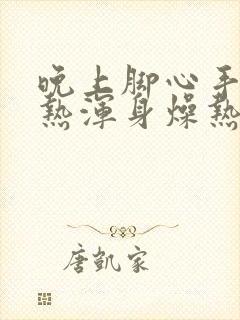 晚上脚心手
热浑身燥热
唐凯家